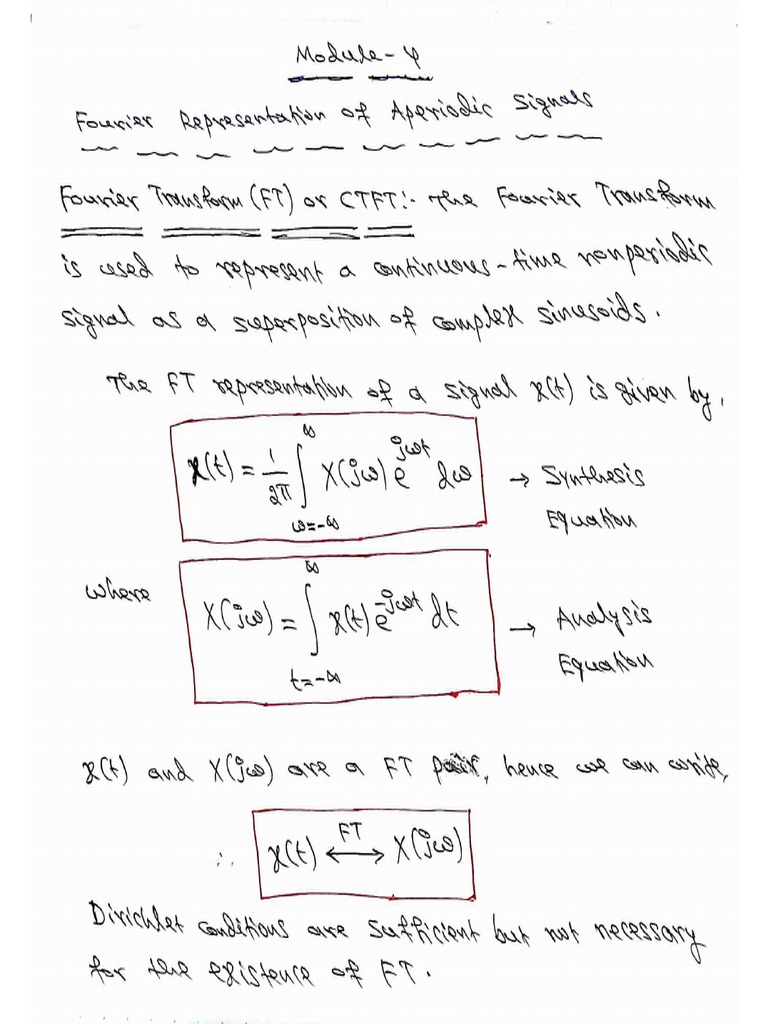 Module-4
Fourier Representation of Aperiodic Signals
Fourier Transform (FT) or CTFT:- The Fourier Transform
is used to represent a continuous-time nonperiodic
signal as a superposition of complex sinusoids.
The FT representation of a signal x(t) is given by,
x(t) = 1/2π ∫_{ω=-∞}^{∞} X(jω) e^{jωt} dω → Synthesis
Equation
where
X(jω) = ∫_{t=-∞}^{∞} x(t) e^{-jωt} dt → Analysis
Equation
x(t) and X(jω) are a FT pair, hence we can write,
∴ x(t) ⟷^{FT} X(jω)
Dirichlet conditions are sufficient but not necessary
for the existence of FT.